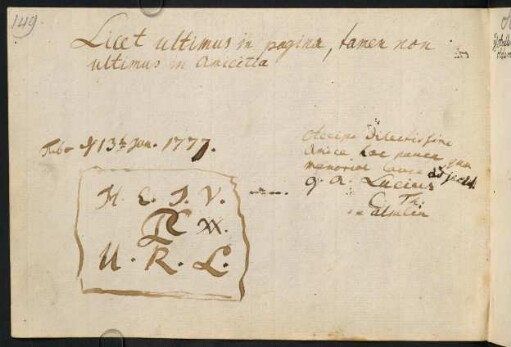 149.
Licet ultimus in pagina, tamen non
ultimus in amicitia
13 Jan. 1777.
H. E. J. V.
W.
U. R. L.
Accipe Dilectissime
Amice hac
memoriae causa
Lucius
C. Th.
in